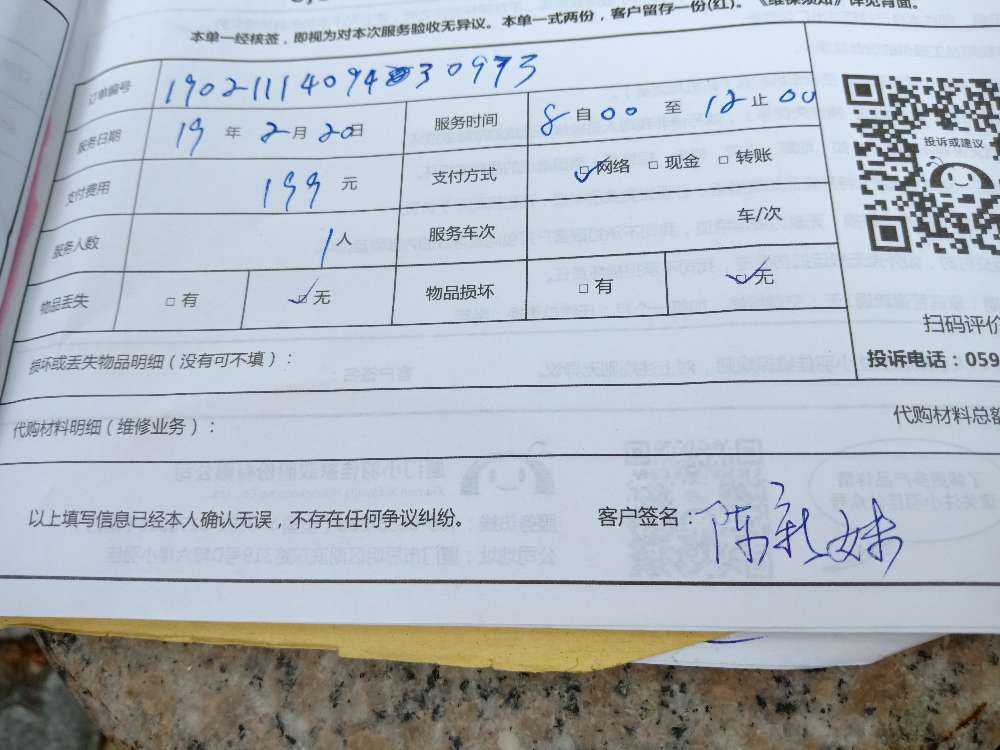 本单一经核签，即视为对本次服务验收无异议。本单一式两份，客户留存一份(红)。《维保须知》详见背面。
订单编号
服务日期 19 年 2 月 20 日 服务时间 8 自 00 至 12 止 00
支付费用 199 元 支付方式 ☑网络 □现金 □转账
服务人数 1 人 服务车次 车/次
物品丢失 □有 ☑无 物品损坏 □有 ☑无
投诉或建议
扫码评价
损坏或丢失物品明细（没有可不填）：
投诉电话：059
代购材料明细（维修业务）：
代购材料总额
以上填写信息已经本人确认无误，不存在任何争议纠纷。 客户签名：陈彩妹